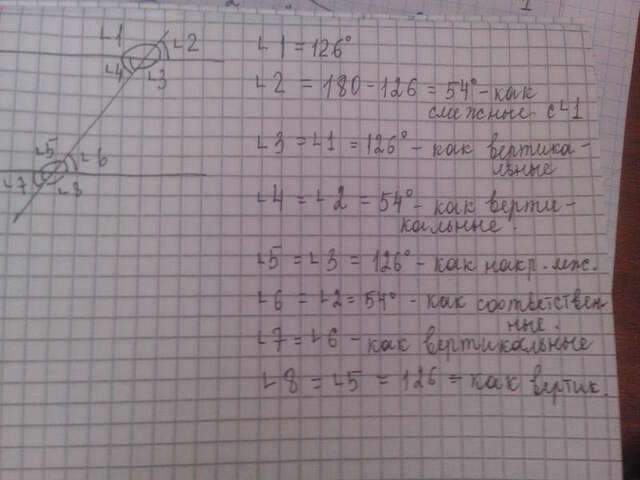 ∠1 ∠2
∠4 ∠3
∠5 ∠6
∠7 ∠8
∠1 = 126°
∠2 = 180 - 126 = 54° - как
смежные с ∠1
∠3 = ∠1 = 126° - как вертика-
льные
∠4 = ∠2 = 54° - как верти-
кальные.
∠5 = ∠3 = 126° - как накр. леж.
∠6 = ∠2 = 54° - как соответствен
ные.
∠7 = ∠6 - как вертикальные
∠8 = ∠5 = 126 = как вертик.